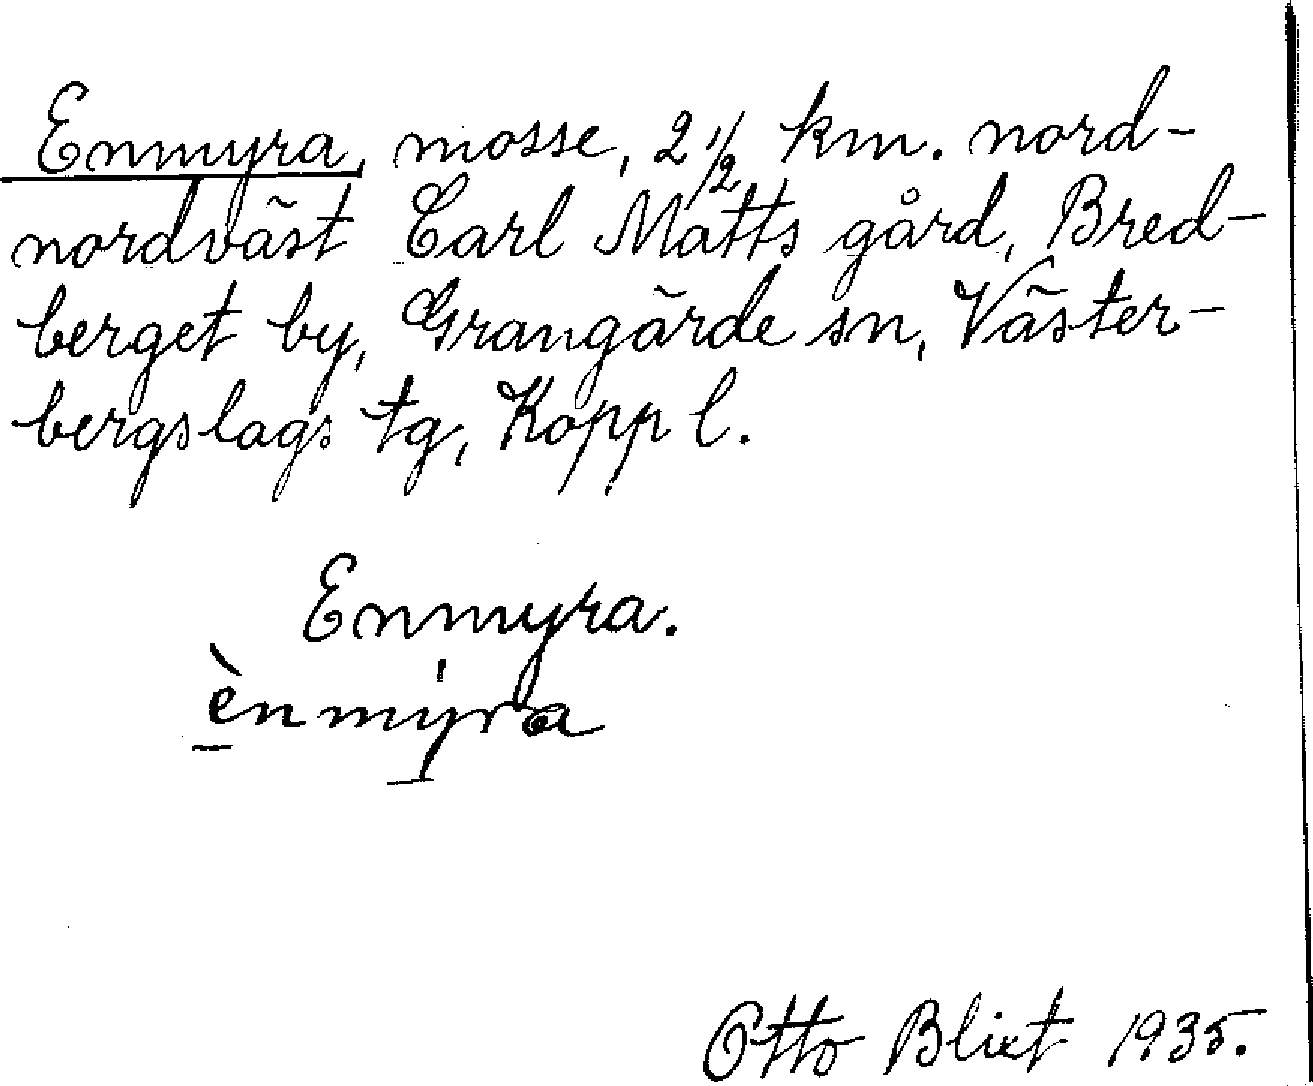 Enmyra, mosse, 2 1/2 km. nord-
nordväst Carl Matts gård, Bred-
berget by, Grangärde sn, Väster-
bergslags tg, Kopp l.
Enmyra.
ènmyra
Otto Blixt 1935.